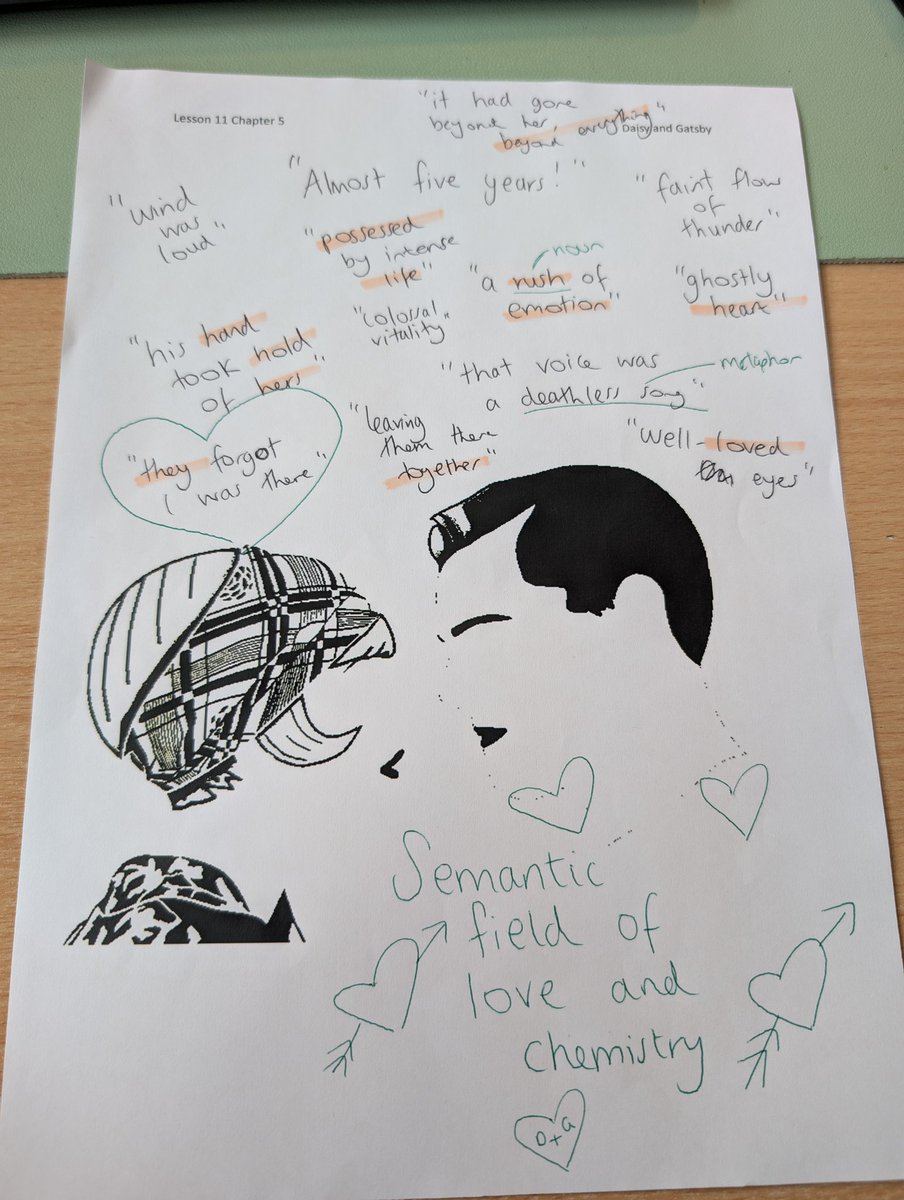 Lesson 11 Chapter 5
"it had gone
beyond her,
beyond everything"
Daisy and Gatsby
"Almost five years!"
"wind
was
loud"
"faint flow
of
thunder"
"possessed
by intense
life"
noun
"a rush of
emotion"
"ghostly
heart"
"colossal
vitality"
"his hand
took hold
of hers"
"that voice was
a deathless song"
metaphor
"leaving
them there
together"
"well-loved
eyes"
"they forgot
I was there"
Semantic
field of
love and
chemistry
D+G